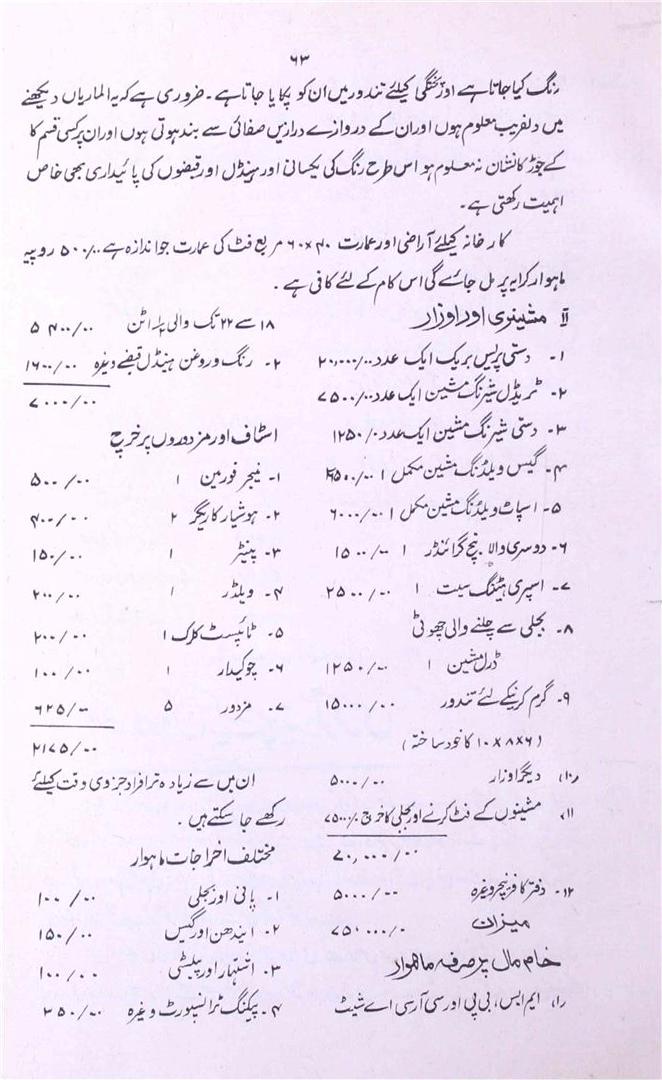 ۶۳
رنگ کیا جاتا ہے اور پختگی کیلئے تندور میں ان کو پکایا جاتا ہے۔ ضروری ہے کہ یہ الماریاں دیکھنے
میں دلفریب معلوم ہوں اور ان کے دروازے درازیں صفائی سے بند ہوتی ہوں اور ان پر کسی قسم کا
کے جوڑ کا نشان نہ معلوم ہو اس طرح رنگ کی یکسانی اور ہینڈل اور قبضوں کی پائیداری بھی خاص
اہمیت رکھتی ہے۔
کارخانہ کیلئے آراضی اور عمارت ۴۰×۶۰ مربع فٹ کی عمارت جو اندازہ ہے ۵۰۰/۰۰ روپیہ
ماہوار کرایہ پر مل جائے گی اس کام کے لئے کافی ہے۔
II مشینری اور اوزار
۱- دستی پریس بریک ایک عدد ۲۰,۰۰۰/۰۰
۲- ٹریڈل شیرنگ مشین ایک عدد ۷۵۰۰/۰۰
۳- دستی شیرنگ مشین ایک عدد ۱۲۵۰/۰
۴- گیس ویلڈنگ مشین مکمل ۱ ۲۵۰۰/۰۰
۵- اسپاٹ ویلڈنگ مشین مکمل ۱ ۶۰۰۰/۰۰
۶- دوسری والا بنچ گرائنڈر ۱ ۱۵۰۰/۰۰
۷- اسپری ہیٹنگ سیٹ ۱ ۲۵۰۰/۰۰
۸- بجلی سے چلنے والی چھوٹی
ڈرل مشین ۱ ۱۲۵۰/۰۰
۹- گرم کرنیکے لئے تندور ۱۵۰۰۰/۰۰
(۱۰×۸×۶ کا خود ساختہ)
(۱۰) دیگر اوزار ۵۰۰۰/۰۰
۱۱) مشینوں کے فٹ کرنے اور بجلی کا خرچ ۷۵۰۰/۰۰
۷۰,۰۰۰/۰۰
۱۲- دفتر کا فرنیچر وغیرہ ۵۰۰۰/۰۰
میزان ۷۵۰۰۰/۰
خام مال پر صرفہ ماہوار
(۱) ایم ایس، بی پی اور سی آر سی اے شیٹ
۱۸ سے ۲۲ تک والی ٹن ۵۴۰۰/۰۰
۲- رنگ و روغن ہینڈل قبضے وغیرہ ۱۶۰۰/۰۰
۷۰۰۰/۰۰
اسٹاف اور مزدوروں پر خرچ
۱- منیجر فورمین ۱ ۵۰۰/۰۰
۲- ہوشیار کاریگر ۲ ۴۰۰/۰۰
۳- پینٹر ۱ ۱۵۰/۰۰
۴- ویلڈر ۱ ۲۰۰/۰۰
۵- ٹائپسٹ کلرک ۱ ۲۰۰/۰۰
۶- چوکیدار ۱ ۱۰۰/۰۰
۷- مزدور ۵ ۶۲۵/۰۰
۲۱۷۵/۰۰
ان میں سے زیادہ تر افراد جزوی وقت کیلئے
رکھے جا سکتے ہیں۔
مختلف اخراجات ماہوار
۱- پانی اور بجلی ۱۰۰/۰۰
۲- ایندھن اور گیس ۱۵۰/۰۰
۳- اشتہار اور پبلسٹی ۱۰۰/۰۰
۴- پیکنگ ٹرانسپورٹ وغیرہ ۳۵۰/۰۰